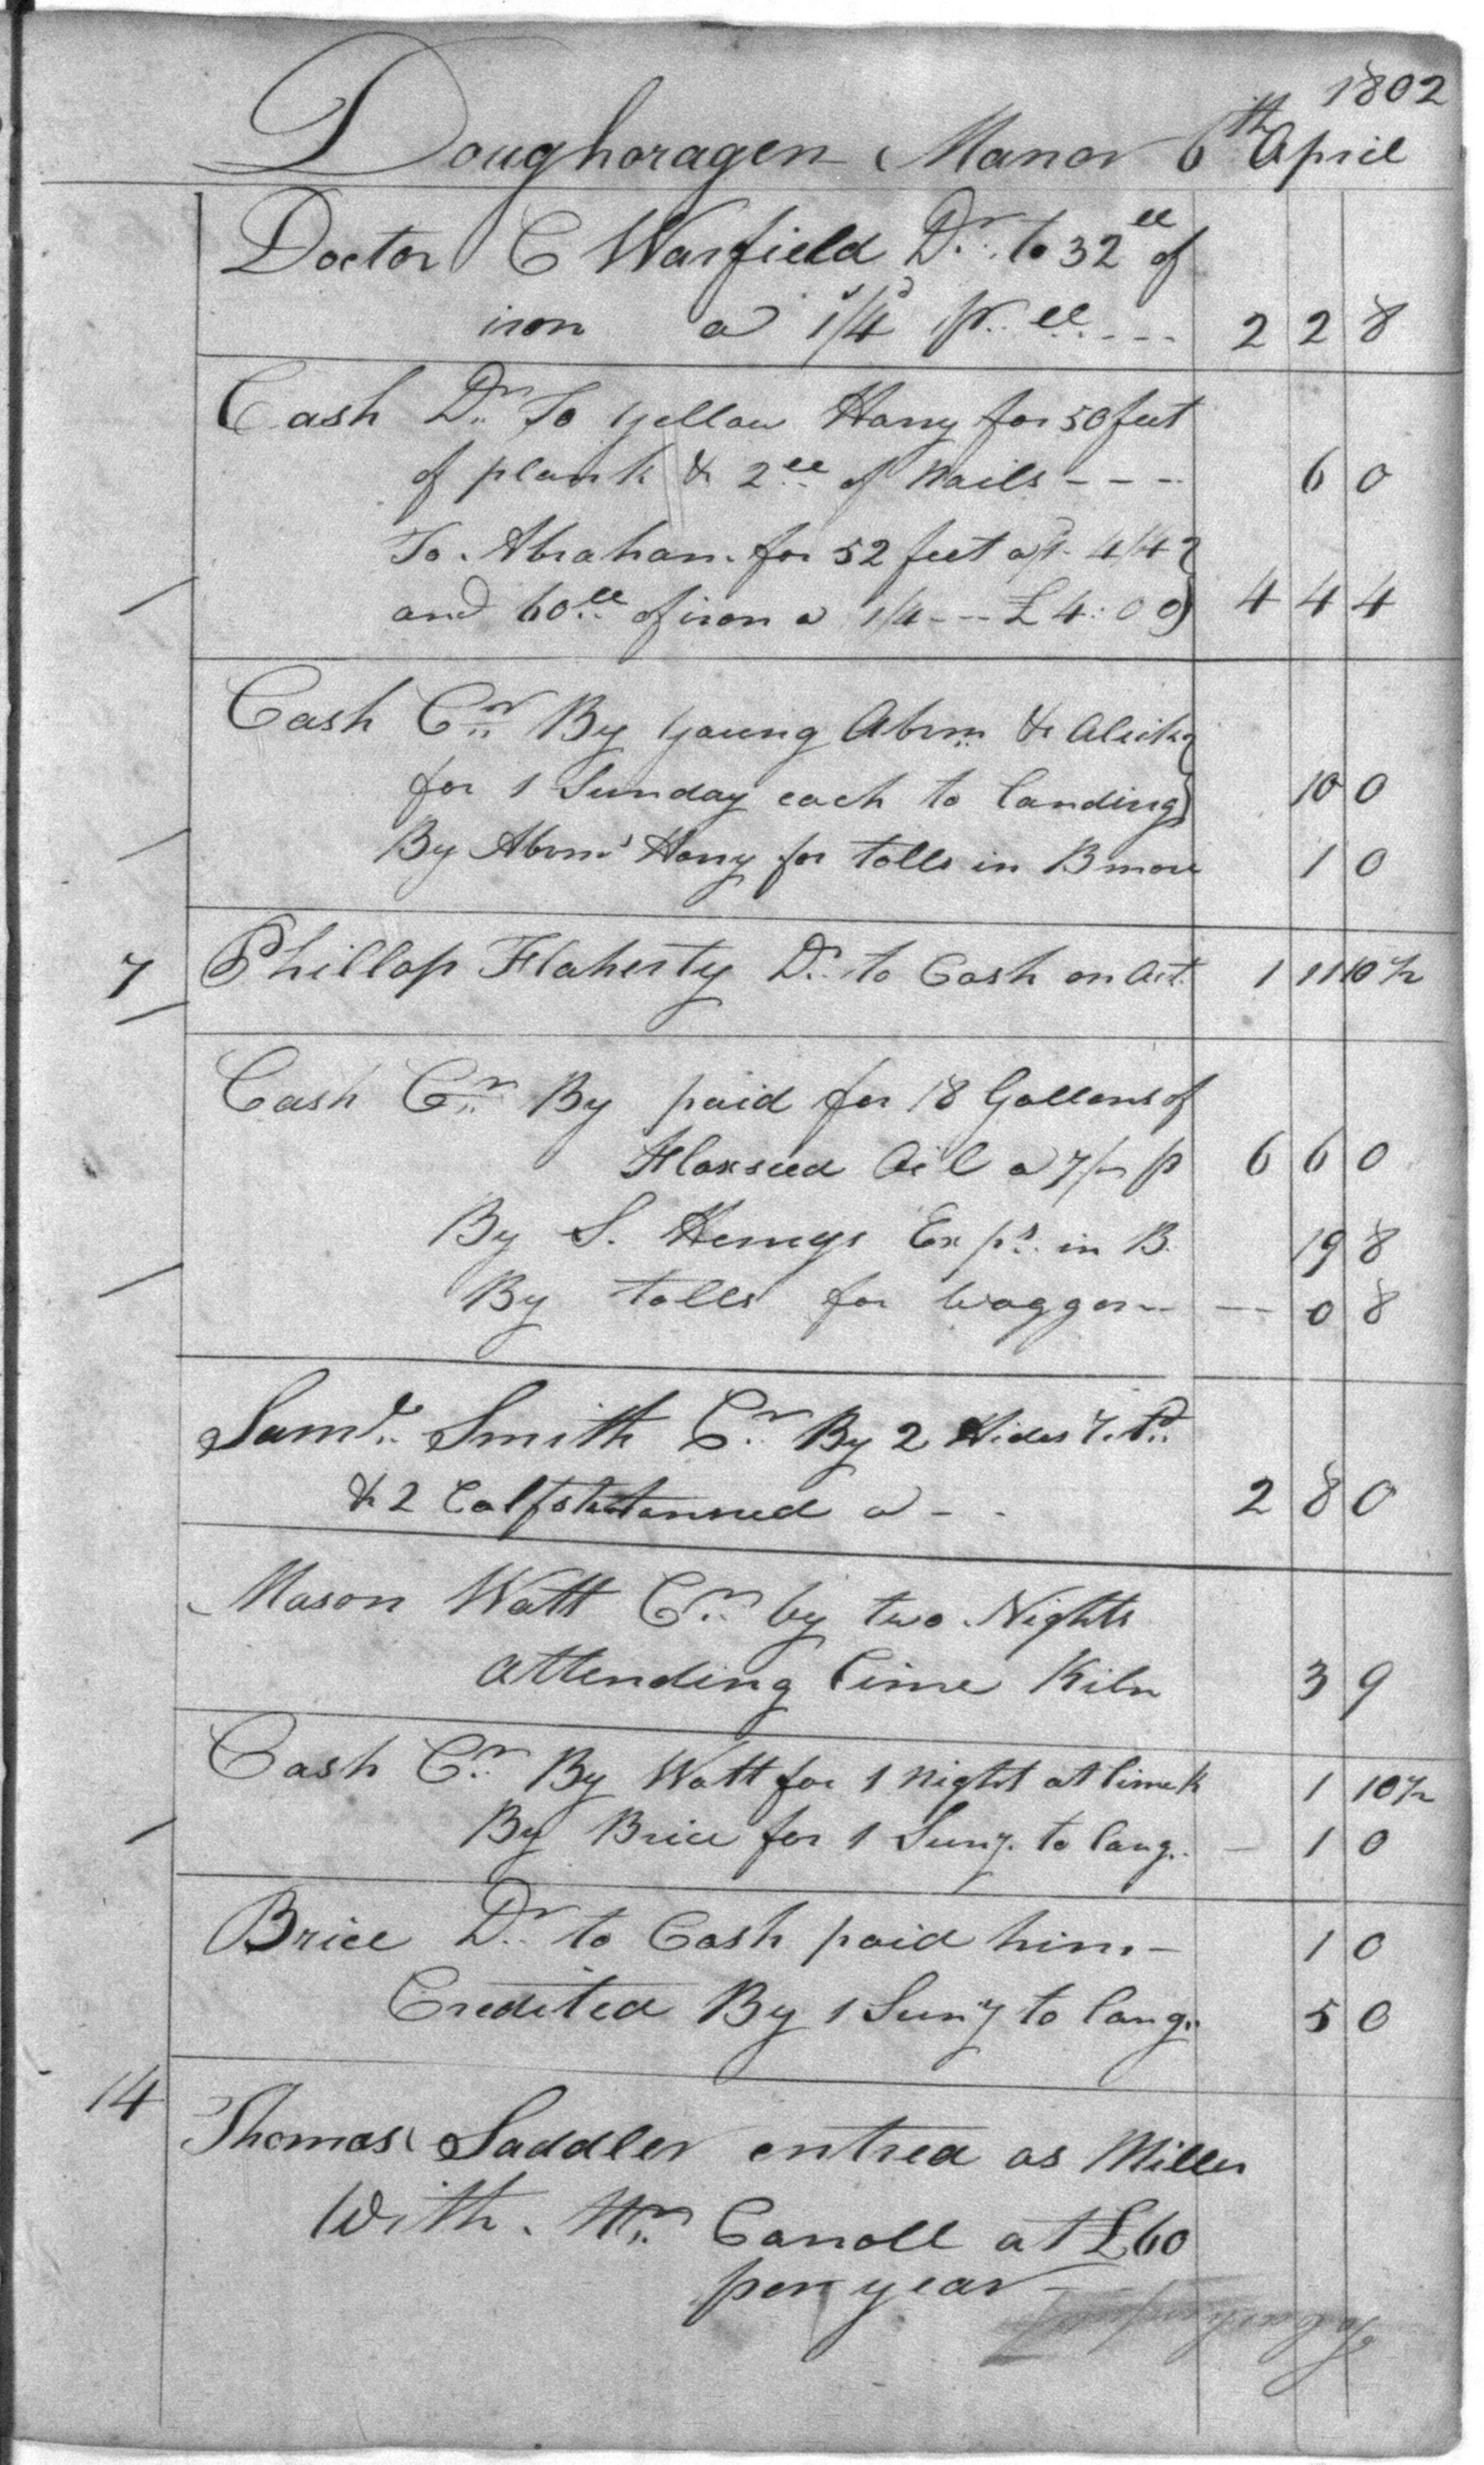 1802
Doughoragen Manor 6th April
Doctor C Warfield Dr. to 32 ll of
iron a 1/4d pr. ll --- 2 2 8
Cash Dr. To Yellow Harry for 50 feet
of plank & 2 ll of Nails --- 6 0
To Abraham for 52 feet a 4/4
and 60 ll of iron a 1/4 --- £4:0 0 4 4 4
Cash Cr. By young Abrm. & Alick
for 1 Sunday each to landing 10 0
By Abrm Harry for tolls in Bmore 1 0
7 Phillop Flaherty Dr. to Cash on Act. 1 11 10 1/2
Cash Cr. By paid for 18 Gallons of
Flaxseed Oil a 7/- p 6 6 0
By S. Henrys Exps. in B. 19 8
By tolls for Waggon -- 0 8
Saml. Smith Cr. By 2 Hides
& 2 Calfsk tanned a - - 2 8 0
Mason Watt Cr. by two Nights
attending lime Kiln 3 9
Cash Cr. By Watt for 1 night at lime k 1 10 1/2
By Brice for 1 Suny. to lang. - 1 0
Brice Dr. to Cash paid him - 1 0
Credited By 1 Suny to lang. 5 0
14 Thomas Saddler entred as Miller
With Mr. Carroll at £60
per year